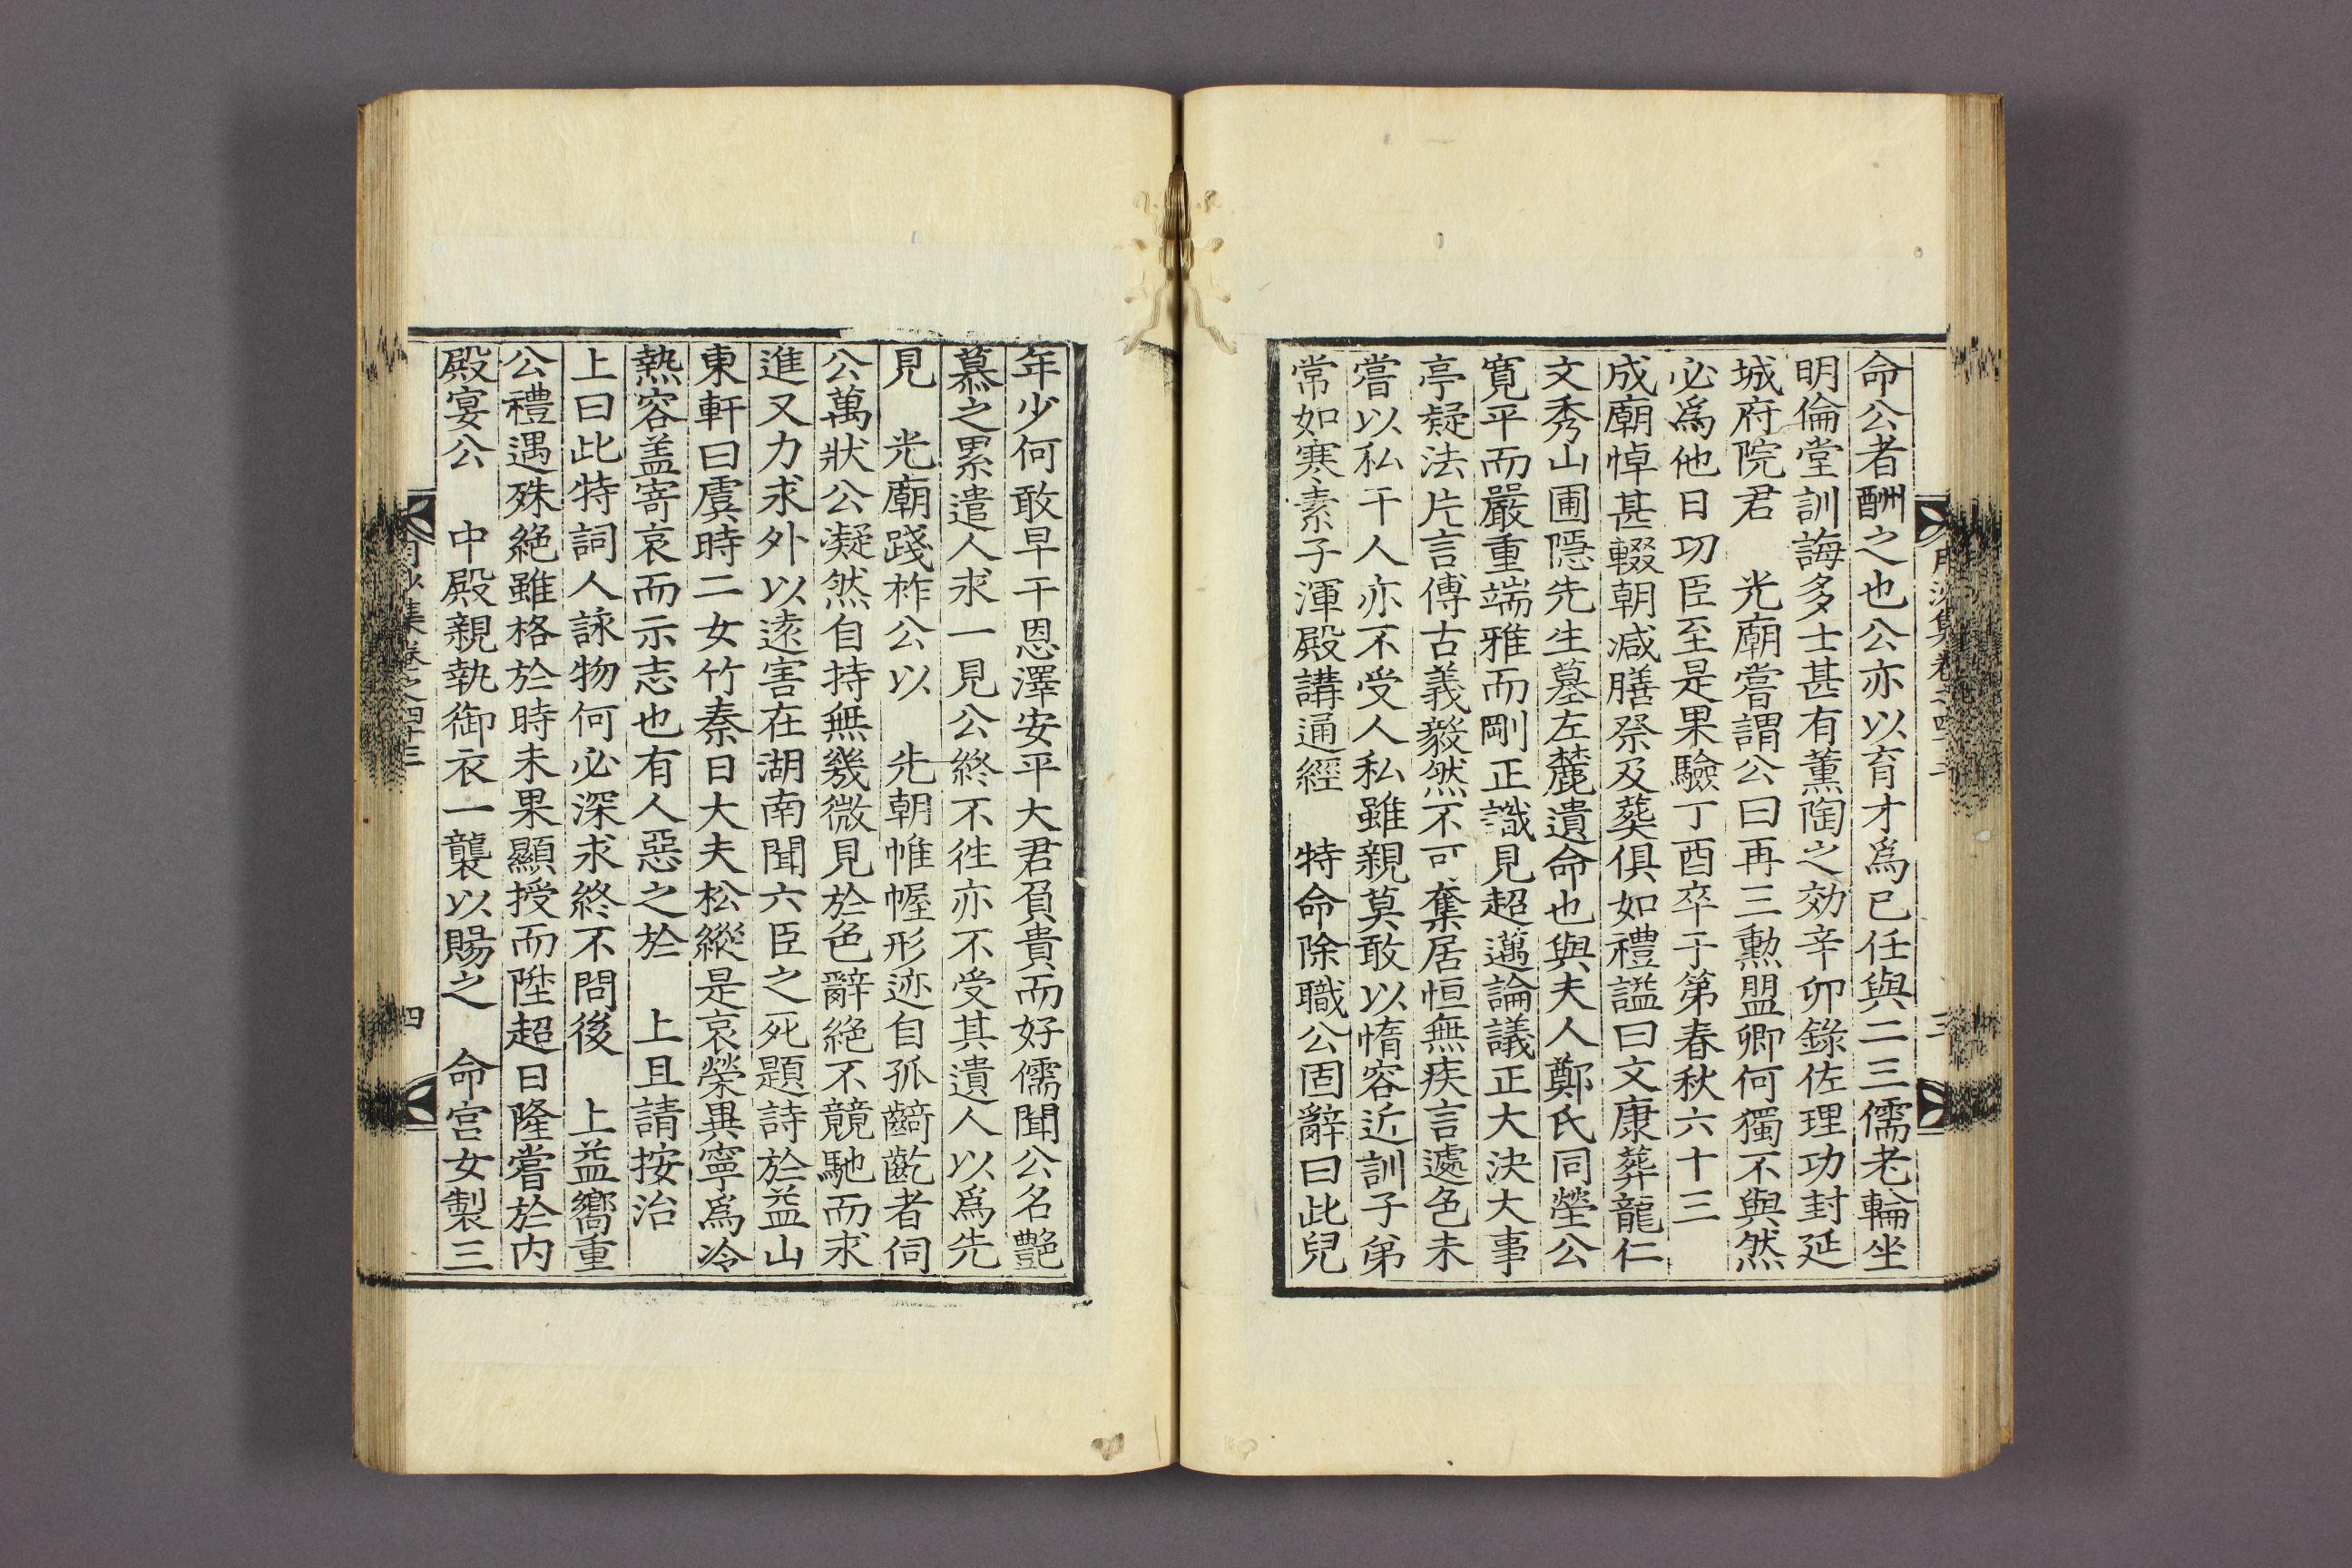 命公者酬之也公亦以育才爲己任與二三儒老輪坐
明倫堂訓誨多士甚有薰陶之効辛卯錄佐理功封延
城府院君　光廟嘗謂公曰再三勲盟卿何獨不與然
必爲他日功臣至是果驗丁酉卒于第春秋六十三
成廟悼甚輟朝减膳祭及葬俱如禮謚曰文康葬龍仁
文秀山圃隱先生墓左麓遺命也與夫人鄭氏同塋公
寬平而嚴重端雅而剛正識見超邁論議正大決大事
亭疑法片言傅古義毅然不可奪居恒無疾言遽色未
嘗以私干人亦不受人私雖親莫敢以惰容近訓子弟
常如寒素子渾殿講通經　特命除職公固辭曰此兒
年少何敢早干恩澤安平大君負貴而好儒聞公名艶
慕之累遣人求一見公終不徃亦不受其遺人以爲先
見　光廟踐柞公以　先朝帷幄形迹自孤齮齕者伺
公萬狀公凝然自持無幾微見於色辭絶不競馳而求
進又力求外以遠害在湖南聞六臣之死題詩於益山
東軒曰虞時二女竹秦日大夫松縱是哀榮異寧爲冷
熱容盖寄哀而示志也有人惡之於　上且請按治
上曰此特詞人詠物何必深求終不問後　上益嚮重
公禮遇殊絶雖格於時未果顯授而陞超日隆嘗於内
殿宴公　中殿親執御衣一襲以賜之　命宫女製三
月沙集卷之四十三
四